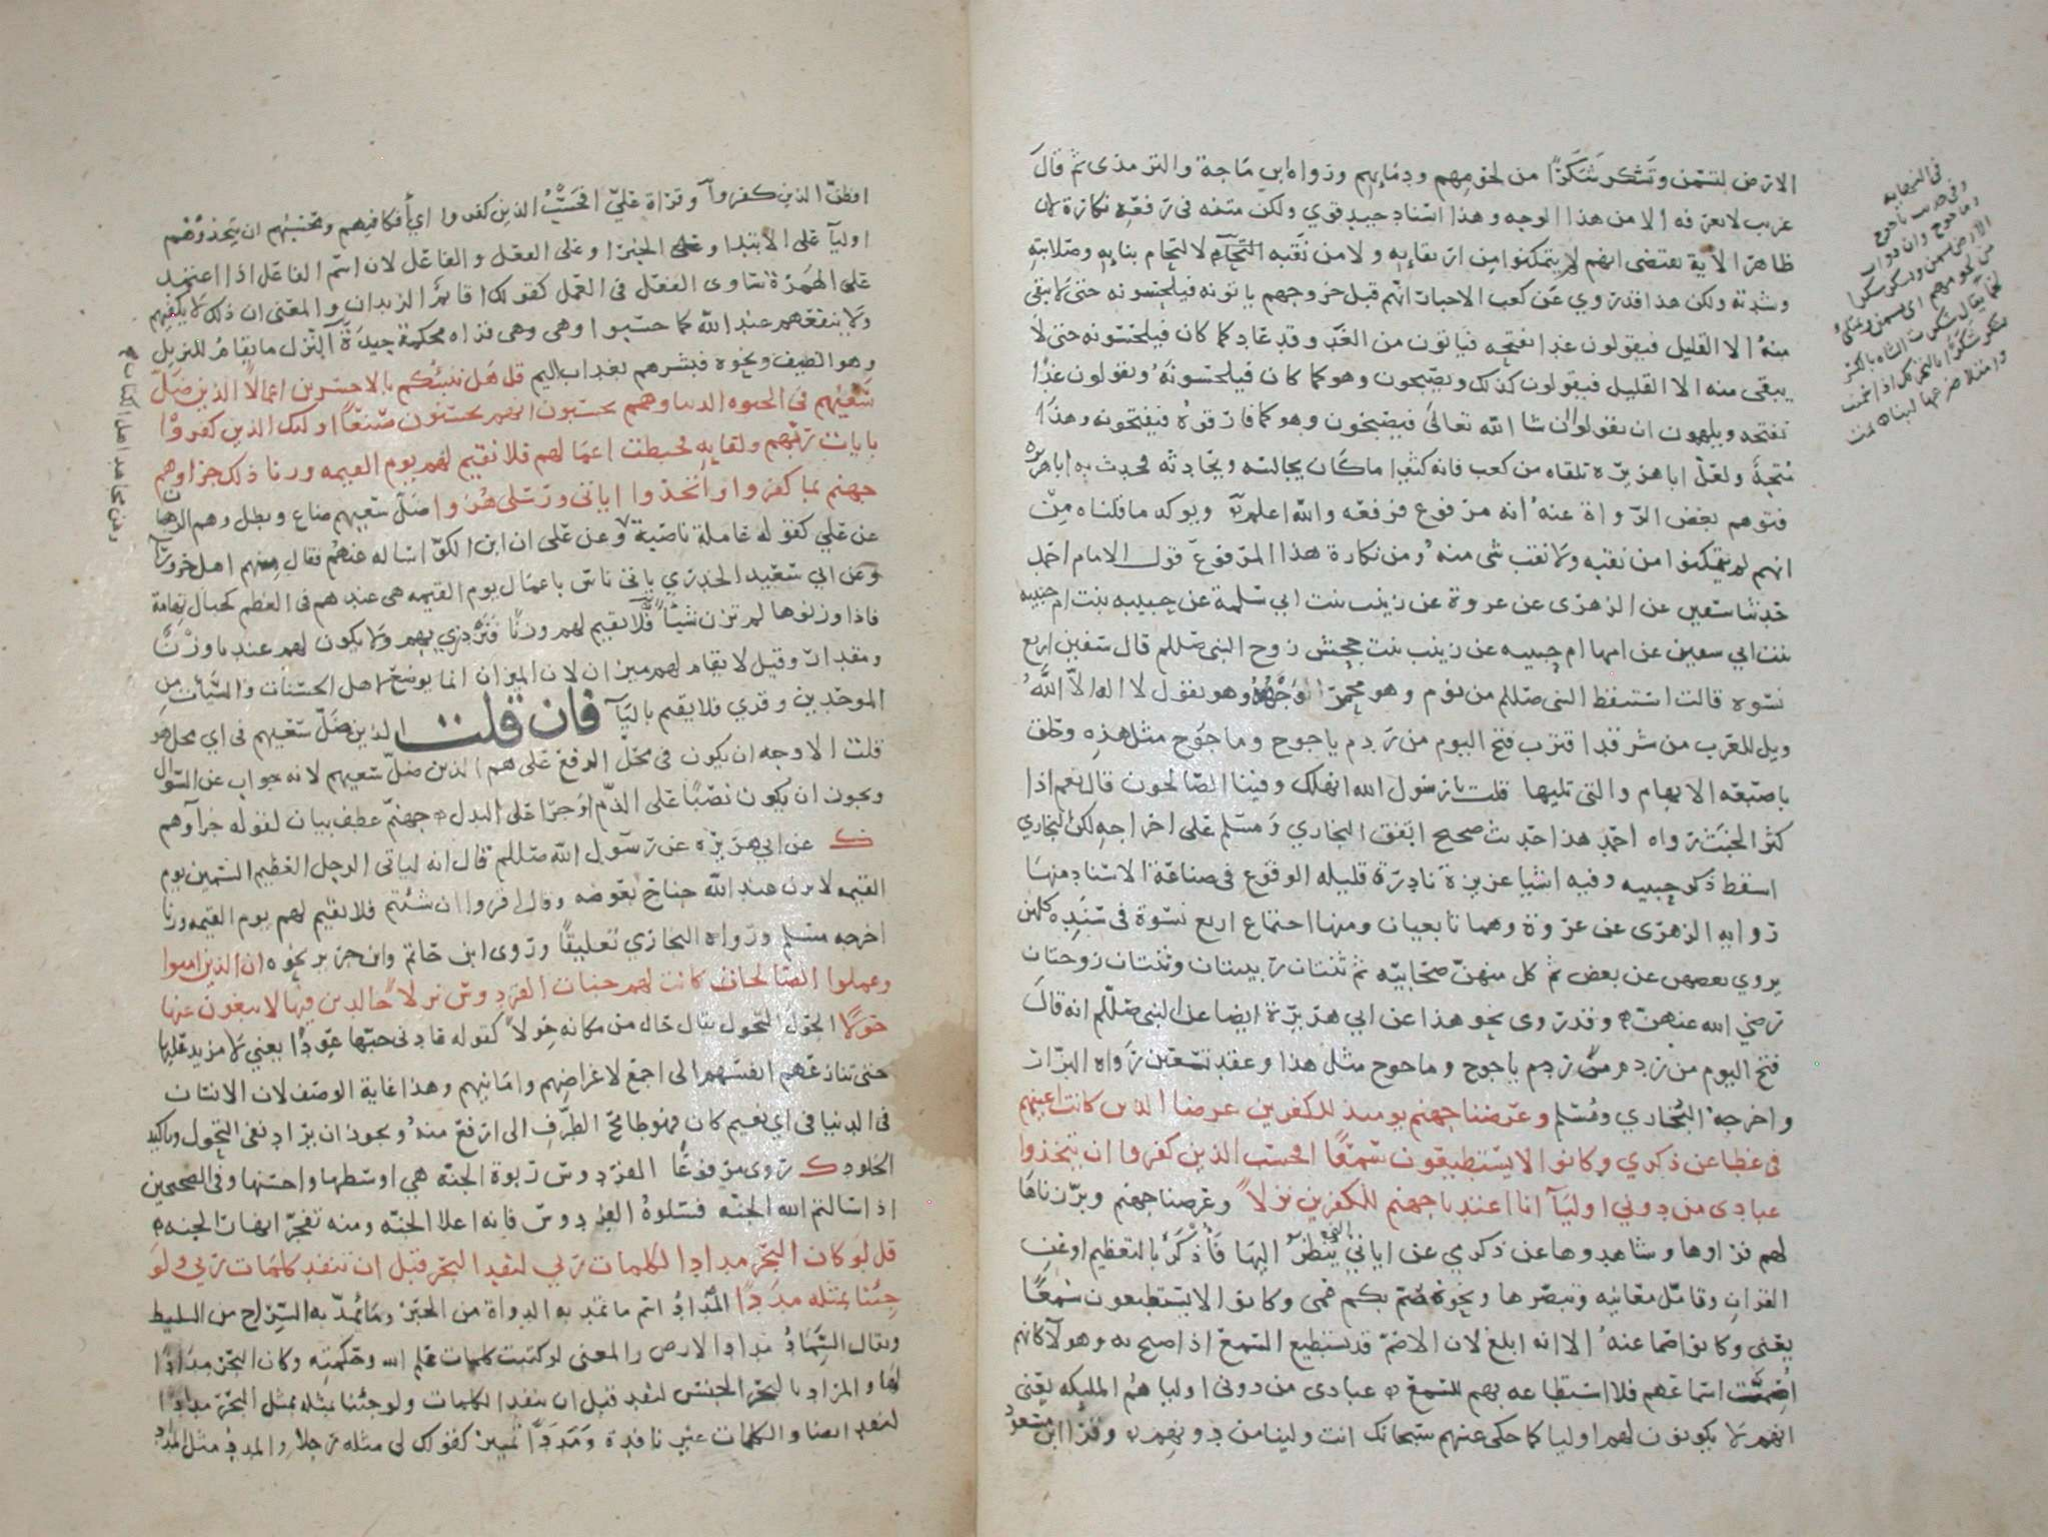 الارض لتسمن وتشكر شكرًا من لحومهم ودمايهم ورواه ابن ماجة والترمذى ثم قال
غريب لا نعرفه الا من هذا الوجه وهذا اسناد جيد قوي ولكن متنه فى رفعه نكارة لان
ظاهر الاية يقتضى انهم لم يتمكنوا من ارتقايه ولا من نقبه لاحكام بنايه وصلابته
وشدته ولكن هذا قد روي عن كعب الاحبار انهم قبل خروجهم ياتونه فيلحسونه حتى لا يبقى
منه الا القليل فيقولون غدا نفتحه فياتون من الغد وقد عاد كما كان فيلحسونه حتى لا
يبقى منه الا القليل فيقولون كذلك ويصبحون وهو كما كان فيلحسونه ويقولون غدًا
نفتحه ويلهمون ان يقولوا ان شا الله تعالى فيصبحون وهو كما فارقوه فيفتحونه وهذا
متجه ولعل ابا هريرة تلقاه من كعب فانه كثيرا ما كان يجالسه ويحادثه فحدث به ابا هريرة
فتوهم بعض الرواة عنه انه مرفوع فرفعه والله اعلم ويوكد ما قلناه من
انهم لم يتمكنوا من نقبه ولا نقب شى منه ومن نكارة هذا المرفوع قول الامام احمد
حدثنا سفين عن الزهرى عن عروة عن زينب بنت ابي سلمة عن حبيبه بنت ام حبيبه
بنت ابي سفين عن امها ام حبيبه عن زينب بنت جحش زوج النبى صللم قال سفين اربع
نسوه قالت استيقظ النبى صللم من نوم وهو محمر وجهه وهو يقول لا اله الا الله
ويل للعرب من شر قد اقترب فتح اليوم من ردم ياجوج وماجوج مثل هذه وحلق
باصبعه الابهام والتى تليها قلت يا رسول الله انهلك وفينا الصالحون قال نعم اذا
كثر الخبث رواه احمد هذا حديث صحيح اتفق البخاري ومسلم على اخراجه لكن البخاري
اسقط ذكر حبيبه وفيه اشيا عزيزة نادرة قليله الوقوع فى صناعة الاسناد منها
رواية الزهرى عن عروة وهما تابعيان ومنها اجتماع اربع نسوة فى سنده كلهن
يروي بعضهن عن بعض ثم كل منهن صحابيه ثم ثنتان ربيبتان وثنتان زوجتان
رضي الله عنهن وقد روى نحو هذا عن ابي هريرة ايضا عن النبى صللم انه قال
فتح اليوم من ردم ياجوج وماجوج مثل هذا وعقد تسعين رواه البزار
واخرجه البخاري ومسلم وعرضنا جهنم يومئذ للكفرين عرضا الذين كانت اعينهم
فى غطا عن ذكري وكانوا لا يستطيعون سمعًا افحسب الذين كفروا ان يتخذوا
عبادى من دوني اوليآ انا اعتدنا جهنم للكفرين نزلا وعرضنا جهنم وبرزناها
لهم فراوها وشاهدوها عن ذكري عن اياتي التي ينظر اليها فاُذكر بالتعظيم او عن
القران وتامل معانيه وتبصرها ونحوه صم بكم عمى وكانوا لا يستطيعون سمعًا
يعني وكانوا صما عنه الا انه ابلغ لان الاصم قد يستطيع السمع اذا صيح به وهولآ كانهم
اصمت اسماعهم فلا استطاعه بهم للسمع عبادى من دونى اوليا هم المليكه يعنى
انهم لا يكونون لهم اوليا كما حكى عنهم سبحانك انت ولينا من دونهم وقرا ابن مسعود
فى النهايه
وفى حديث ياجوج
وماجوج وان دواب
الارض تسمن وتشكر شكرا
من لحومهم اى تسمن وتمتلئ
شحما يقال شكرت الشاه بالكسر
تشكر شكرًا بالتحريك اذا سمنت
وامتلا ضرعها لبنا
افظن الذين كفروآ وقراة عليّ افحسْبُ الذين كفروا اي أفكافيهم ومحسبهم ان يتخذوهم
اوليآ على الابتدا وعلى الخبر او على الفعل والفاعل لان اسم الفاعل اذا اعتمد
على الهمزة ساوى الفعل فى العمل كقولك اقايمٌ الزيدان والمعنى ان ذلك لا يكفيهم
ولا ينفعهم عند الله كما حسبوا وهى وهى قراه محكمة جيدة النزل ما يقام للنزيل
وهو الضيف ونحوه فبشرهم بعذاب اليم قل هل ننبئكم بالاخسرين اعمالًا الذين ضل
سعيهم فى الحيوه الدنيا وهم يحسبون انهم يحسنون صنعًا اوليك الذين كفروا
بايات ربهم ولقايه فحبطت اعمالهم فلا نقيم لهم يوم القيمه وزنا ذلك جزاوهم
جهنم بما كفروا واتخذوا اياتى ورسلى هزوا ضل سعيهم ضاع وبطل وهم الرهبان
عن علي كقوله عاملة ناصبة وعن على ان ابن الكوّا ساله عنهم فقال منهم اهل حرورا
وعن ابي سعيد الخدري ياتى ناس باعمال يوم القيمه هى عندهم فى العظم كجبال تهامة
فاذا وزنوها لم تزن شيئًا فلا نقيم لهم وزنًا فنزدري بهم ولا يكون لهم عندنا وزنٌ
ومقدار وقيل لا يقام لهم ميزان لان الميزان انما يوضع لاهل الحسنات والسيئات من
الموحدين وقرى فلا يقيم باليآ فان قلت الذين ضل سعيهم فى اي محل هو
قلت الاوجه ان يكون فى محل الرفع على هم الذين ضل سعيهم لانه جواب عن السوال
ويجوز ان يكون نصبًا على الذم او جرا على البدل جهنم عطف بيان لقوله جزآوهم
ك عن ابي هريره عن رسول الله صللم قال انه لياتى الرجل العظيم السمين يوم
القيمه لا يزن عند الله جناح بعوضه وقال اقروا ان شئتم فلا نقيم لهم يوم القيمه وزنا
اخرجه مسلم ورواه البخاري تعليقًا وروى ابن حاتم وابن جرير نحوه ان الذين امنوا
وعملوا الصالحات كانت لهم جنات الفردوس نزلا خالدين فيها لا يبغون عنها
حولا الحول التحول يقال حال من مكانه حِولا كقوله عادنى حبها عِودًا يعني لا مزيد عليها
حتى تنازعهم انفسهم الى اجمع لاغراضهم وامانيهم وهذا غاية الوصف لان الانسان
فى الدنيا فى اي نعيم كان فهو طامح الطرف الى ارفع منه ويجوز ان يراد نفى التحول وتاكيد
الخلود ك روى مرفوعًا الفردوس ربوة الجنه هي اوسطها واحسنها وفى الصحيحين
اذا سالتم الله الجنه فسلوهُ الفردوس فانه اعلا الجنه ومنه تفجر انهار الجنه
قل لو كان البحر مدادا لكلمات ربي لنفد البحر قبل ان تنفد كلمات ربي ولو
جئنا بمثله مددًا المداد اسم ما تمد به الدواة من الحبر وما يمد به السراج من السليط
ويقال السماد مداد الارض والمعنى لو كتبت كلمات علم الله وحكمته وكان البحر مدادًا
لها والمراد بالبحر الجنس لنفد قبل ان تنفد الكلمات ولو جئنا بمثله بمثل البحر مدادًا
لنفد ايضا والكلمات غير نافدة ومددًا تمييز كقولك لى مثله رجلا والمدد مثل المداد
وعن مجاهد اهل الكتاب